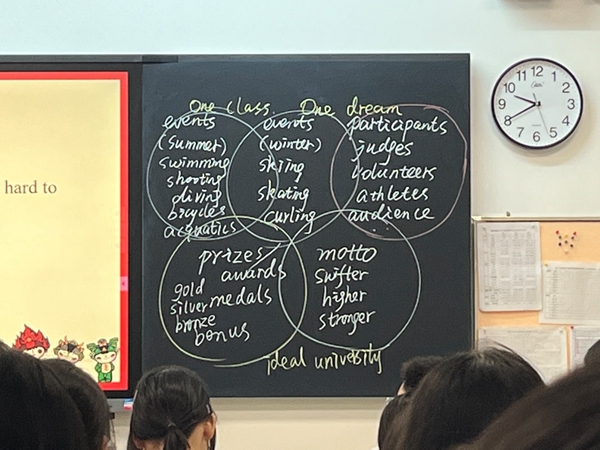 hard to
One class One dream
events
(summer)
swimming
shooting
diving
bicycles
acquatics
events
(winter)
skiing
skating
curling
participants
judges
volunteers
athletes
audience
prizes
awards
gold
silver medals
bronze
bonus
motto
swifter
higher
stronger
ideal university
12
1
2
3
4
5
6
7
8
9
10
11